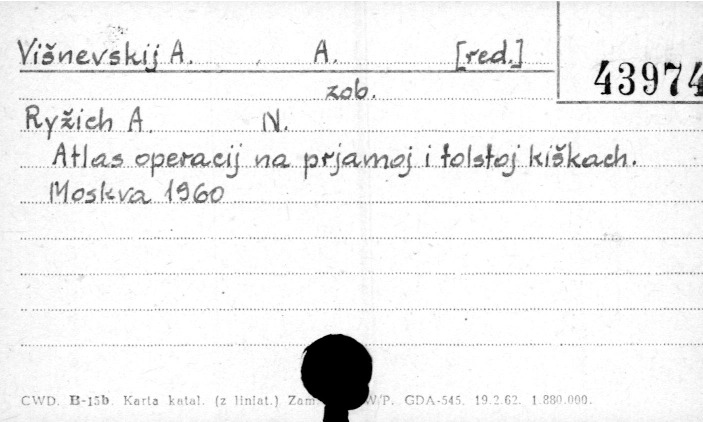 Višnevskij A. A. [red.]
43974
zob.
Ryžich A. N.
Atlas operacij na prjamoj i tolstoj kiškach.
Moskva 1960
CWD. B-15b. Karta katal. (z liniat.) Zam. W/P. GDA-545. 19.2.62. 1.880.000.